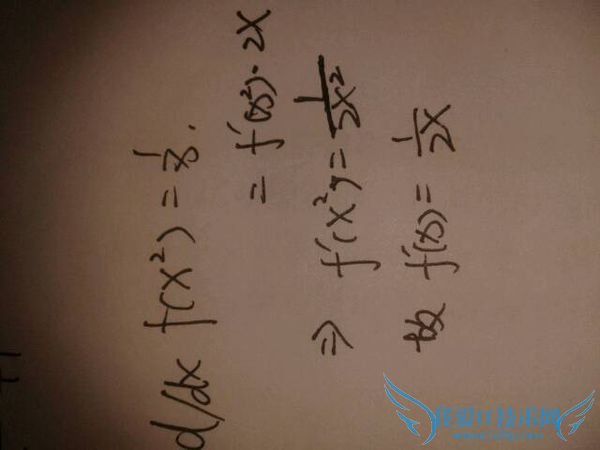 d/dx f(x²) = 1/x.
= f'(x²)·2x
⇒ f'(x²) = 1/2x²
故 f'(x) = 1/2x